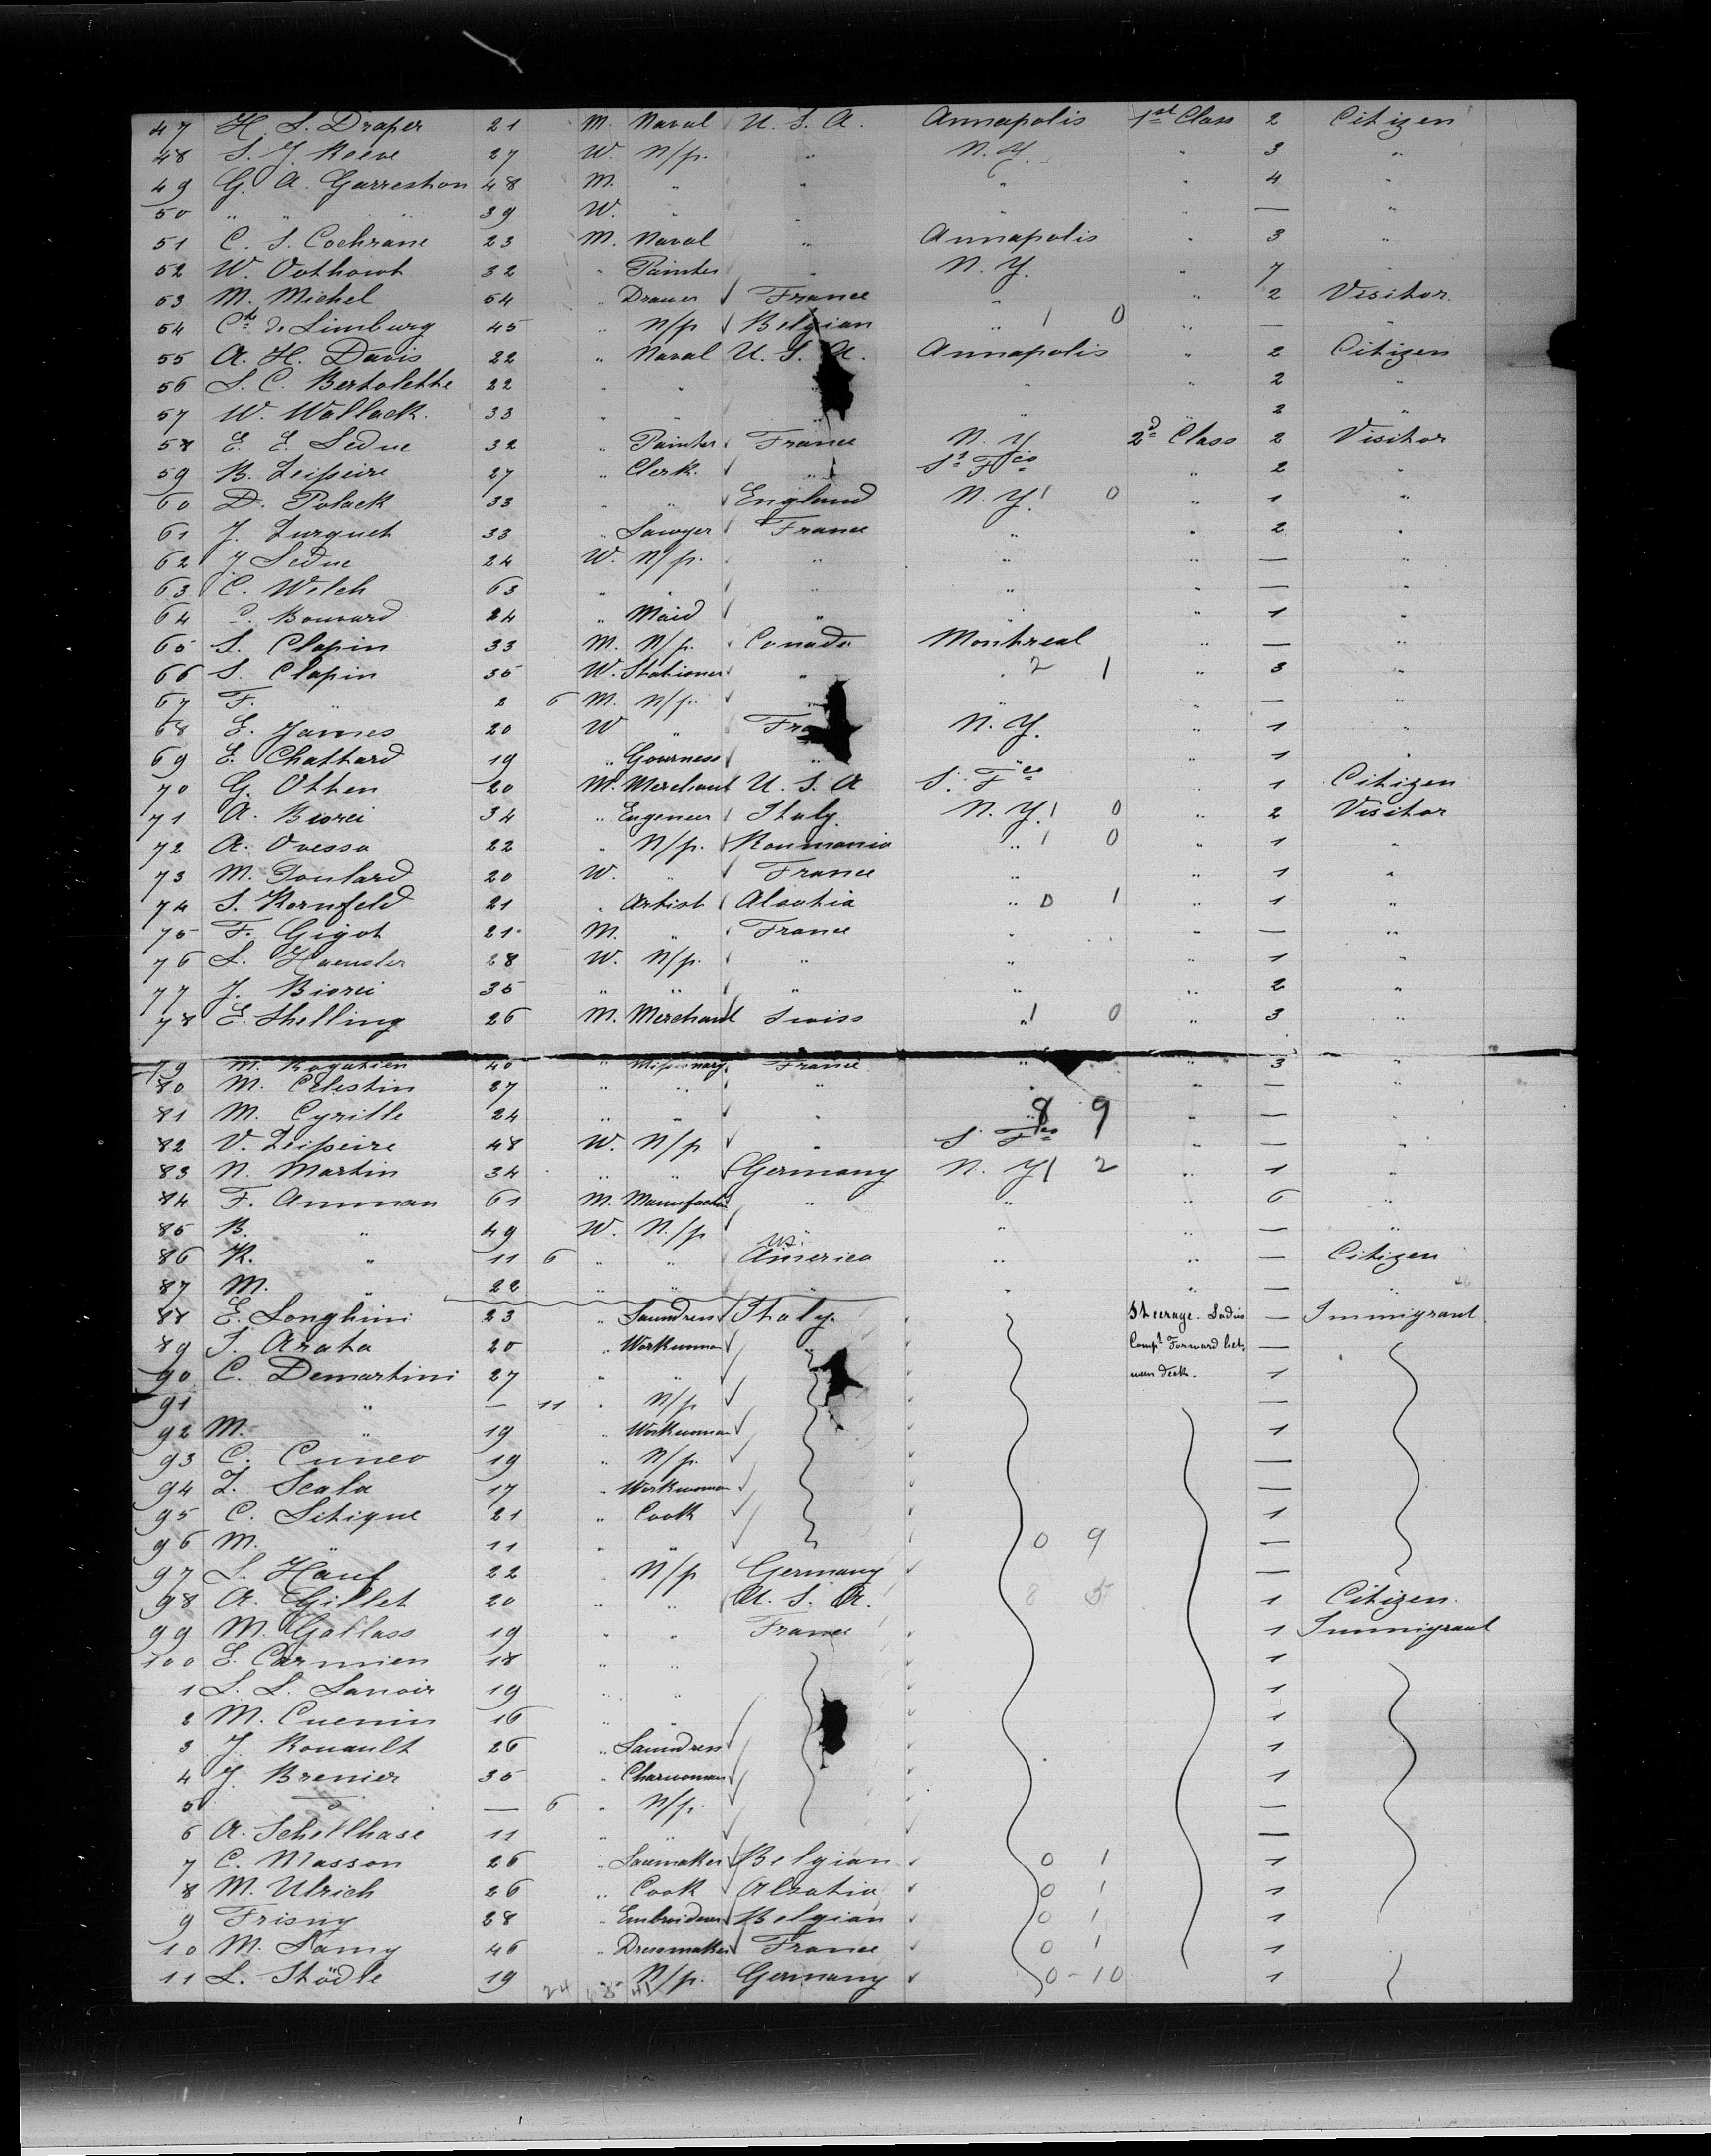 47 H. S. Draper 21 M. Naval U. S. A. Annapolis 1st Class 2 Citizen
48 S. J. Reeve 27 W. N/p. " N. Y. " 3 "
49 G. A. Garreston 48 M. " " " " 4 "
50 " " " 39 W. " " " " — "
51 C. S. Cochrane 23 M. Naval " Annapolis " 3 "
52 W. 32 " Painter " N. Y. " 7 "
53 M. Michel 54 " Drawer France " " 2 Visitor.
54 Cte de Limburg 45 " N/p Belgian " 1 0 " — "
55 A. H. Davis 22 " Naval U. S. A. Annapolis " 2 Citizen
56 S. C. Bertolette 22 " " " " " 2 "
57 W. Wallack. 33 " " " " " 2 "
58 E. E. Leduc 32 " Painter France N. Y 2d Class 2 Visitor
59 B. Leipeire 27 " Clerk. " Sn Fco " 2 "
60 D. Polack 33 " " England N. Y. 1 0 " 1 "
61 J. Zurquet 33 " Lawyer France " " 2 "
62 J Leduc 24 W. N/p. " " " — "
63 C. Welch 63 " " " " " — "
64 Bouvard 24 " Maid " " " 1 "
65 S. Clapin 33 M. N/p. Canada Montreal " — "
66 S. Clapin 35 W. Stationer " " 2 1 " 3 "
67 F. " 2 6 M. N/p. " " " — "
68 E. James 20 W " Fra N. Y. " 1 "
69 E. Chattard 19 " Gourness " " " 1 "
70 G. Otten 20 M. Merchant U. S. A S. Fco " 1 Citizen
71 A. Biorci 34 " Engeneer Italy. N. Y. 1 0 " 2 Visitor
72 A. Ovessa 22 " N/p. Roumania " 1 0 " 1 "
73 M. Toulard 20 W. " France " " 1 "
74 S. Kornfeld 21 " Artist Alsatia " 0 1 " 1 "
75 F. Gigot 21 M. " France " " — "
76 L. Haensler 28 W. N/p. " " " 1 "
77 J. Biorci 35 " " " " " 2 "
78 E. Shelling 26 M. Merchant Swiss " 1 0 " 3 "
79 M. Rogatien 40 " Missionary France " " 3 "
80 M. Celestin 27 " " " " " — "
81 M. Cyrille 24 " " " " 8 9 " — "
82 V. Leipeire 48 W. N/p " S. Fco " — "
83 N. Martin 34 " " Germany N. Y 1 2 " 1 "
84 F. Amman 61 M. " " " 6 "
85 B. " 49 W. N./p " " " — "
86 K. " 11 6 " " America " " — Citizen
87 M. " 22 " " " " " — "
88 E. Longhini 23 " Laundress Italy. " Steerage. Ladies — Immigrant.
89 J. Arata 20 " Workwoman " Compt Forward bet, —
90 C. Demartini 27 " " ween deck. 1
91 " — 11 " N/p —
92 M. " 19 " Workwoman 1
93 C. Cuneo 19 " N/p. —
94 Z. Scala 17 " Workwoman —
95 C. Sitique 21 " Cook 1
96 M. " 11 " " 0 9 —
97 S. Hauf 22 " N/p Germany —
98 A. Gillet 20 " " U. S. A. 8 5 1 Citizen.
99 M. Gallass 19 " " France 1 Immigrant
100 E. Carmien 18 " " 1
1 L. L. Lanoir 19 " " 1
2 M. Cuenin 16 " " 1
3 J. Rouault 26 " Laundress 1
4 J. Brenier 35 " Charwoman 1
5 do — 6 " N/p. —
6 A. Schellhase 11 " " —
7 C. Masson 26 " Belgian 0 1 1
8 M. Ulrich 26 " Cook Alsatia 0 1 1
9 Frisny 28 " Embroiderer Belgian 0 1 1
10 M. Lamy 46 " Dressmaker France 0 1 1
11 L. Stödle 19 " N/p. Germany 0-10 1
24